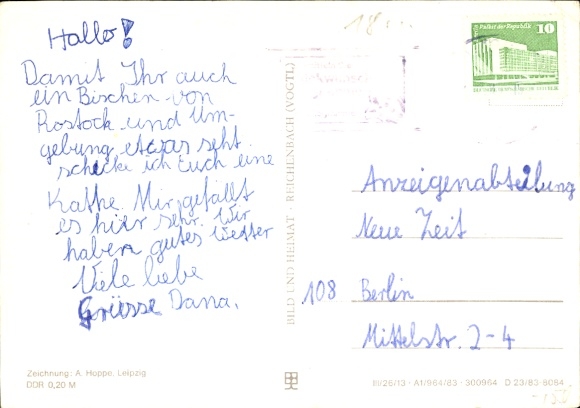 Hallo!
Damit Ihr auch
ein Bischen von
Rostock und Um-
gebung etwas seht
schicke ich Euch eine
Kathe. Mir gefällt
es hier sehr. Wir
haben gutes Wetter
Viele liebe
Grüsse Dana.
Zeichnung: A. Hoppe, Leipzig
DDR 0,20 M
BILD UND HEIMAT · REICHENBACH (VOGTL)
Palast der Republik 10
Anzeigenabteilung
Neue Zeit
108 Berlin
Mittelstr. 2-4
III/26/13 · A1/964/83 · 300964 D 23/83 8064